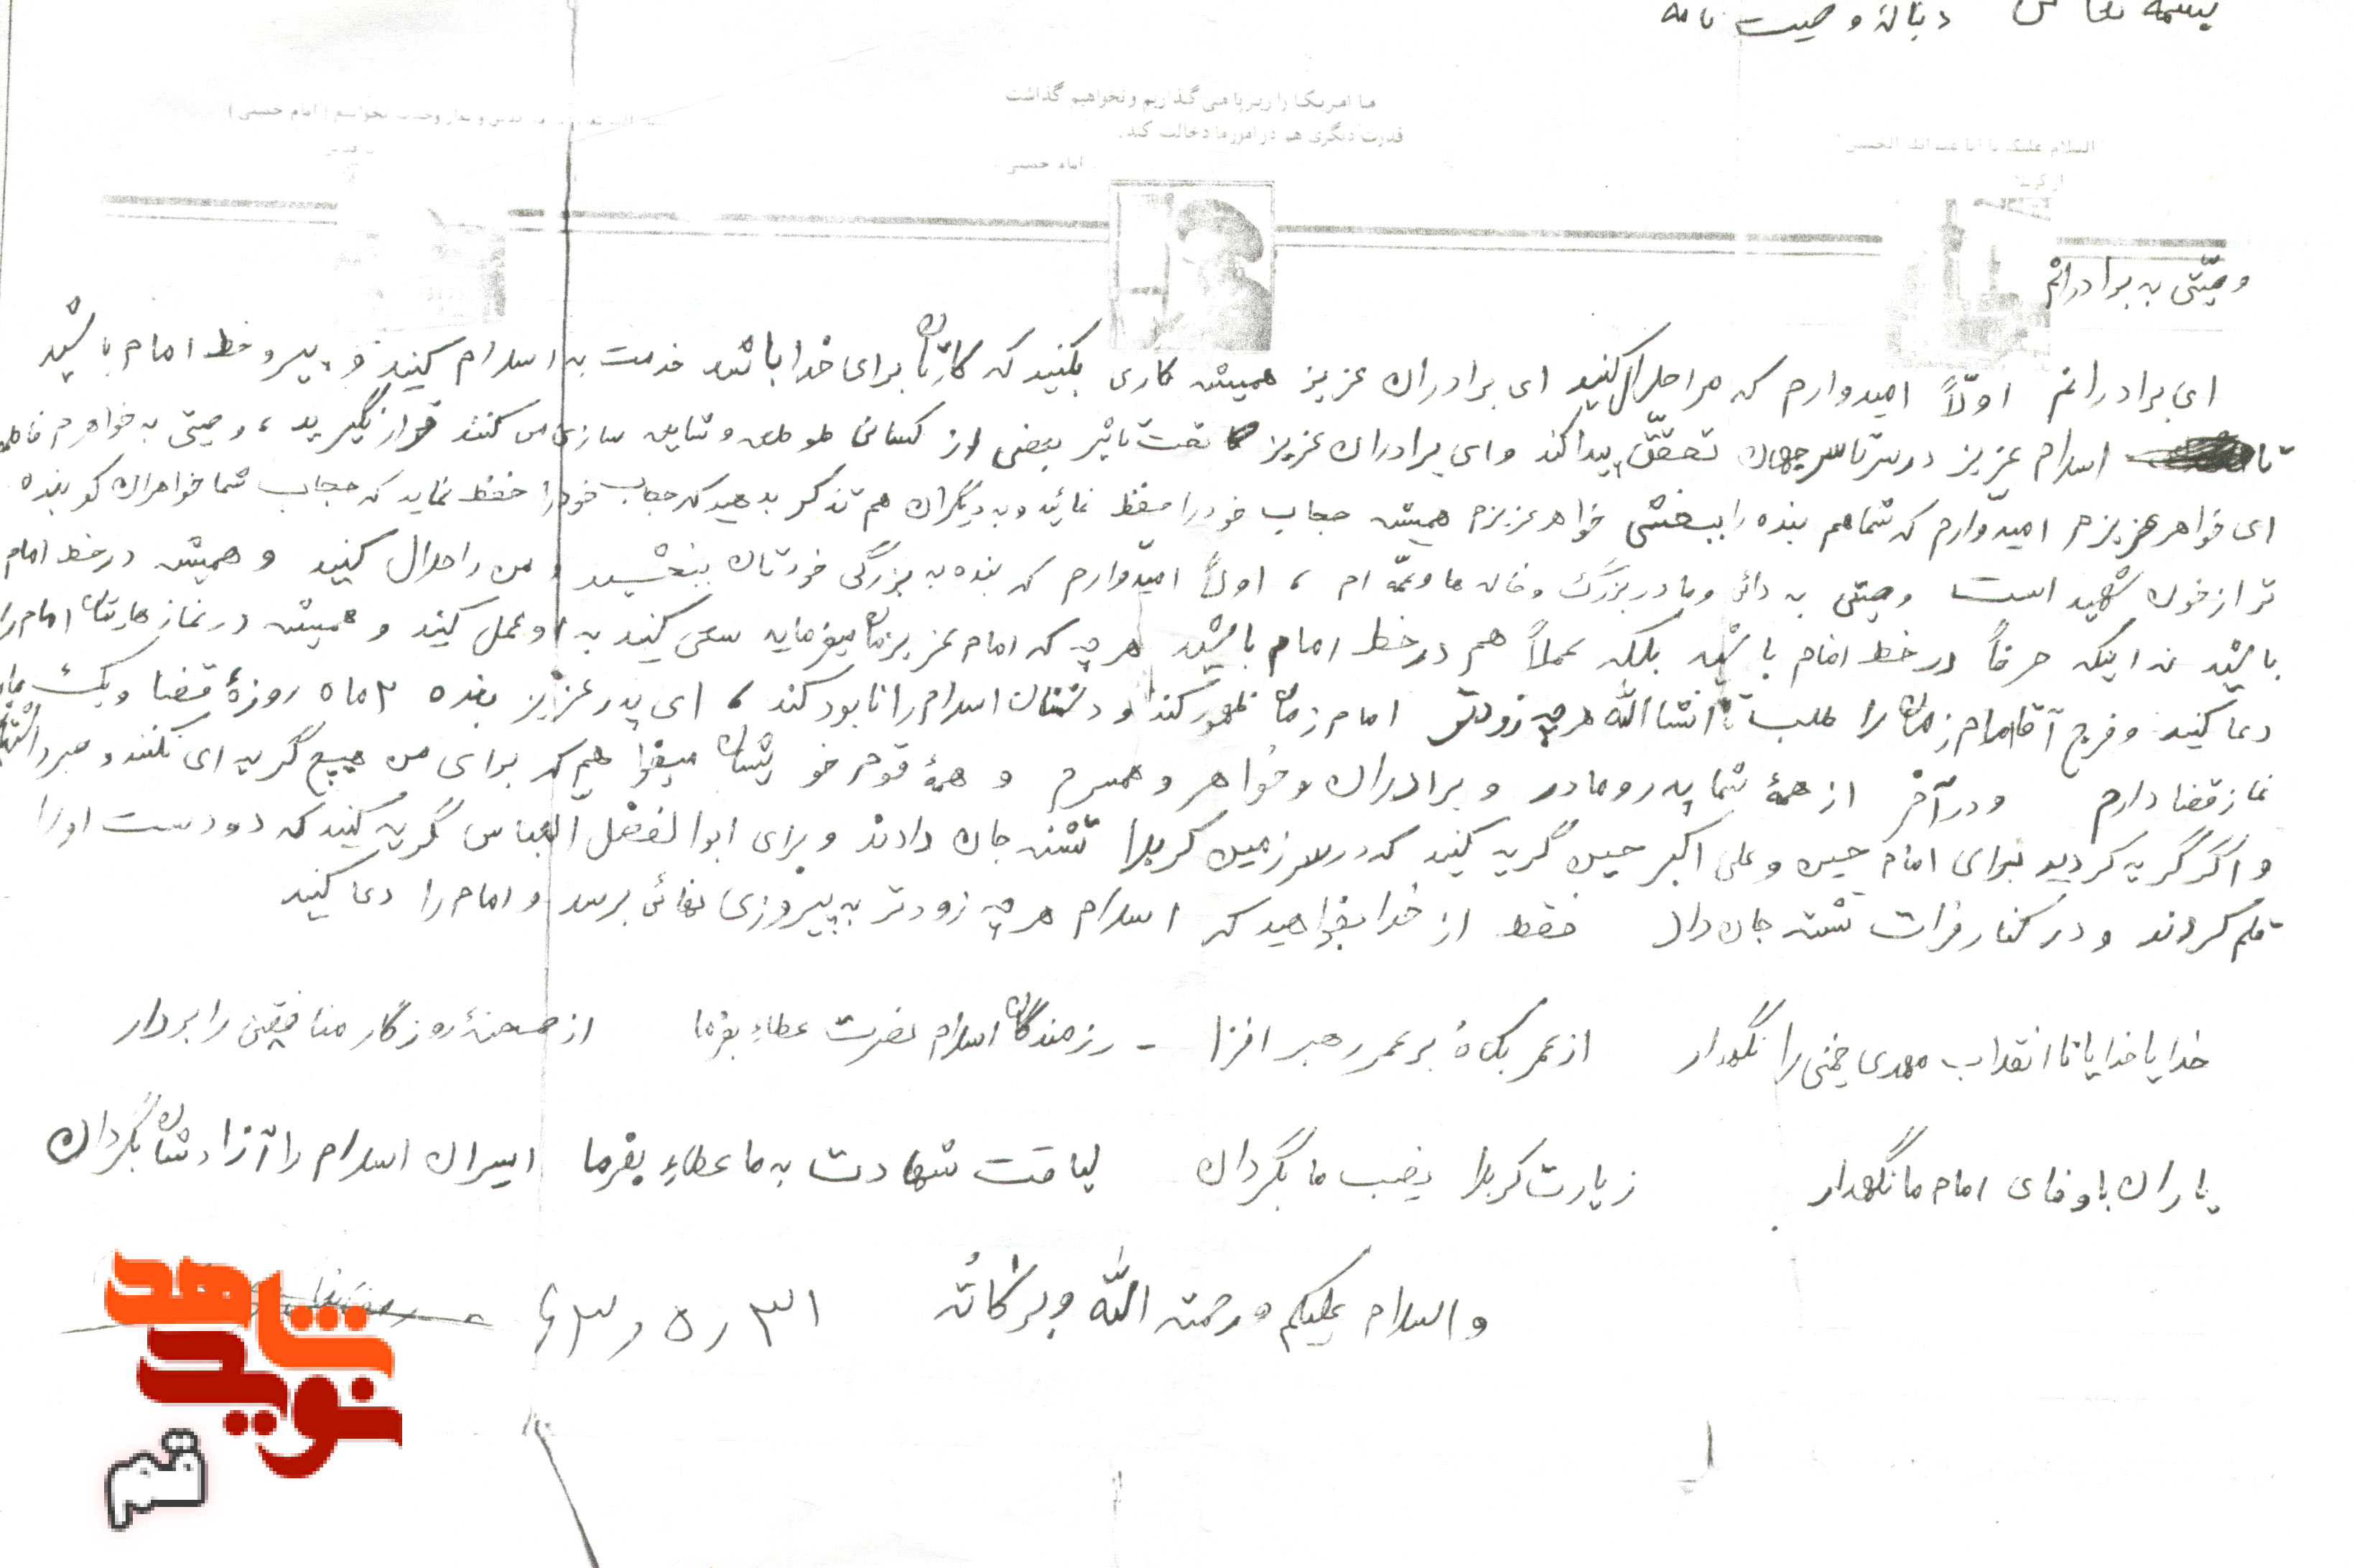 بسمه تعالی دنبالهٔ وصیت نامه
ما امریکا را زیر پا می گذاریم و نخواهیم گذاشت
قدرت دیگری هم در امور ما دخالت کند.
امام خمینی
السلام علیک یا ابا عبدالله الحسین
وصیّتی به برادرانم
ای برادرانم اوّلاً امیدوارم که مرا حلال کنید ای برادران عزیز همیشه کاری بکنید که کارتان برای خدا باشد خدمت به اسلام کنید و پیرو خط امام باشید
تا اسلام عزیز در سرتاسر جهان تحقّق پیدا کند و ای برادران عزیز تحت تاثیر بعضی از کسانی که و شایعه سازی می کنند قرار نگیرید، وصیتی به خواهرم فاطمه
ای خواهر عزیزم امیدوارم که شما هم بنده را ببخشی خواهر عزیزم همیشه حجاب خود را حفظ نمائید و به دیگران هم تذکر بدهید که حجاب خود را حفظ نماید که حجاب شما خواهران کوبنده
تر از خون شهید است وصیتی به دائی و مادر بزرگ و خاله ها و عمّه ام ، اولاً امیدوارم که بنده به بزرگی خودتان ببخشید و من را حلال کنید و همیشه در خط امام
باشید نه اینکه حرفاً در خط امام باشید بلکه عملاً هم در خط امام باشید هر چه که امام عزیزمان میفرماید سعی کنید به او عمل کنید و همیشه در نمازهایتان امام را
دعا کنید و فرج آقا امام زمان را طلب تا انشاالله هر چه زودتر امام زمان ظهور کند و دشمنان اسلام را نابود کند ، ای پدر عزیز بنده ۲ ماه روزهٔ قضا و یک
نماز قضا دارم و در آخر از همهٔ شما پدر و مادر و برادران و خواهر و همسرم و همهٔ قوم خویشان میخواهم که برای من هیچ گریه ای نکنند و صبر داشته
و اگر گریه کردید برای امام حسین و علی اکبر حسین گریه کنید که در سرزمین کربلا تشنه جان دادند و برای ابوالفضل العباس گریه کنید که دو دست او را
قلم کردند و در کنار فرات تشنه جان داد فقط از خدا بخواهید که اسلام هر چه زودتر به پیروزی نهائی برسد و امام را دعا کنید
خدایا خدایا تا انقلاب مهدی خمینی را نگهدار از عمر بکاهُ بر عمر رهبر افزا - رزمندگان اسلام نصرت عطاءِ بفرما از صحنهٔ روزگار منافقین را بردار
یاران باوفای امام ما نگهدار زیارت کربلا نصیب ما بگردان لیاقت شهادت به ما عطاءِ بفرما اسیران اسلام را آزادشان بگردان
والسلام علیکم و رحمته الله و برکاته ۳۱ ر ۵ ر ۶۳
نوید شاهد
قم